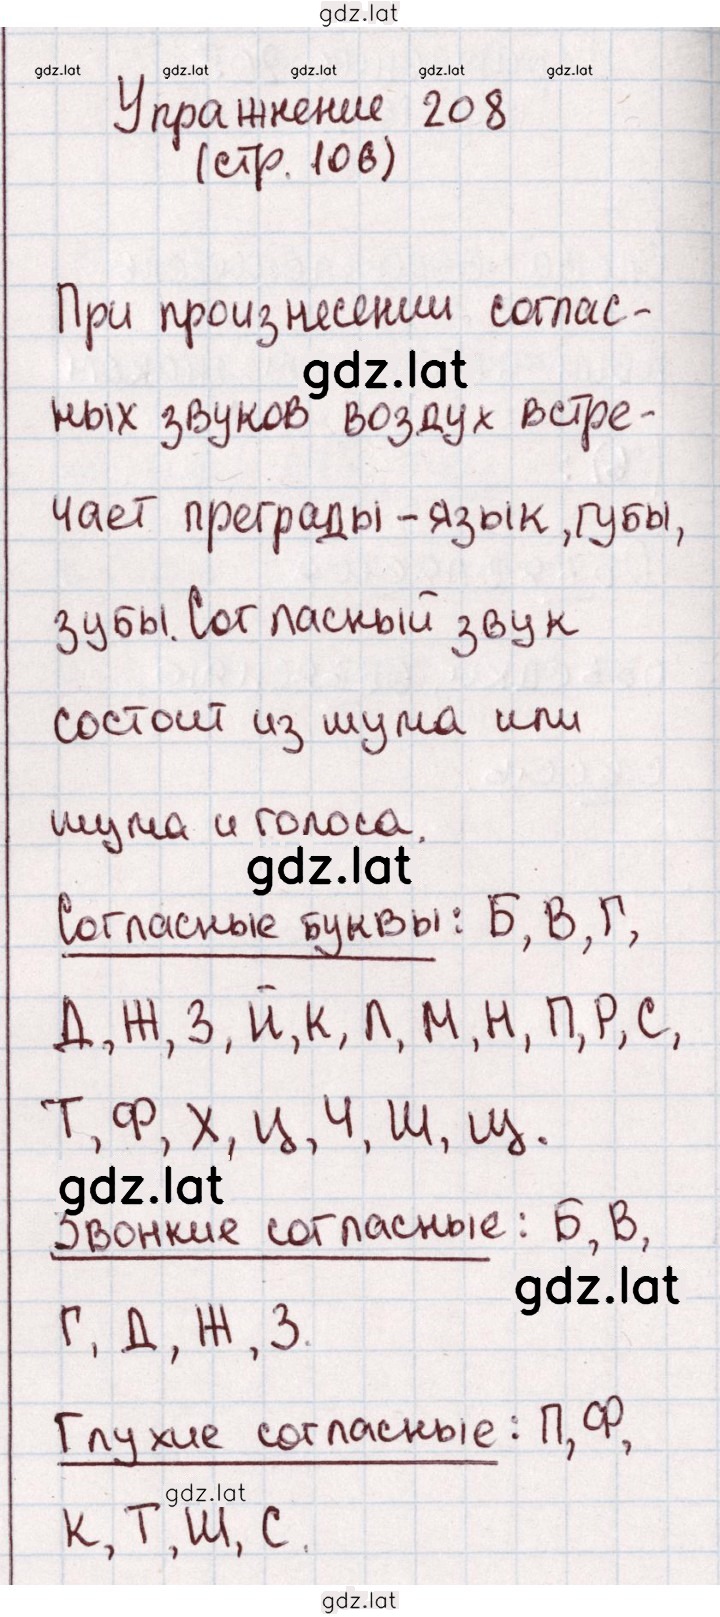 gdz.lat
gdz.lat gdz.lat gdz.lat gdz.lat gdz.lat
Упражнение 208
(стр. 106)
При произнесении соглас-
gdz.lat
ных звуков воздух встре-
чает преграды - язык, губы,
зубы. Согласный звук
состоит из шума или
шума и голоса.
gdz.lat
Согласные буквы: Б, В, Г,
Д, Ж, З, Й, К, Л, М, Н, П, Р, С,
Т, Ф, Х, Ц, Ч, Ш, Щ.
gdz.lat
Звонкие согласные: Б, В,
gdz.lat
Г, Д, Ж, З.
Глухие согласные: П, Ф,
gdz.lat
К, Т, Ш, С.
gdz.lat